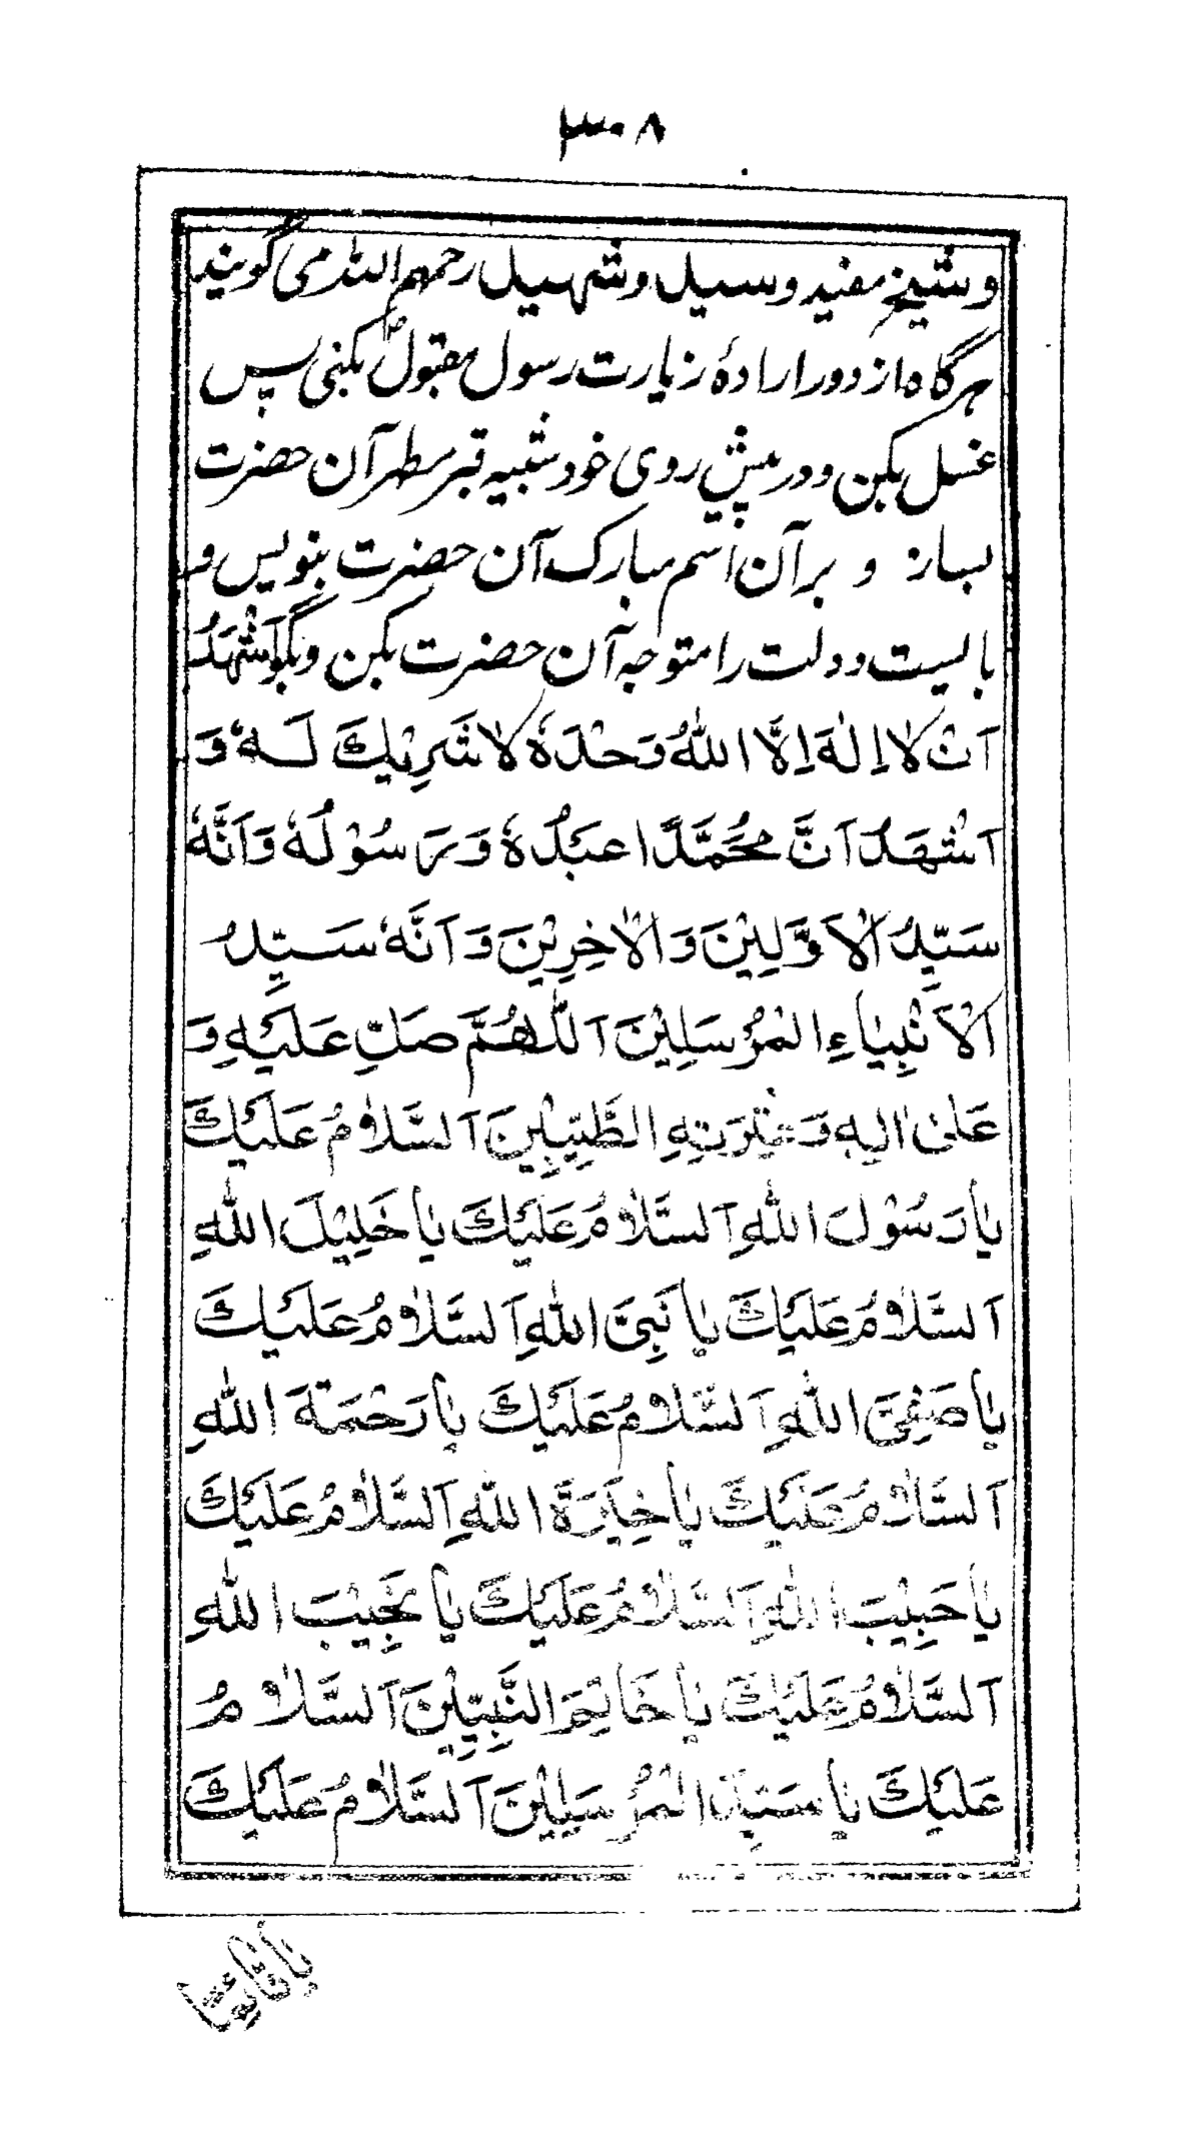 ۳۰۸
و شیخ مفید و سید و شهید رحمهم الله می گویند
هرگاه از دور ارادهٔ زیارت رسول مقبولؐ بکنی پس
غسل بکن و در پیش روی خود شبیه قبر مطهر آن حضرت
بساز و بر آن اسم مبارک آن حضرت بنویس و
بایست و دلت را متوجه آن حضرت بکن و بگو اَشْهَدُ
اَنْ لَا اِلٰهَ اِلَّا اللّٰهُ وَحْدَهٗ لَا شَرِيْكَ لَهٗ وَ
اَشْهَدُ اَنَّ مُحَمَّدًا عَبْدُهٗ وَ رَسُوْلُهٗ وَ اَنَّهٗ
سَيِّدُ الْاَوَّلِيْنَ وَ الْاٰخِرِيْنَ وَ اَنَّهٗ سَيِّدُ
الْاَنْبِيَاءِ الْمُرْسَلِيْنَ اَللّٰهُمَّ صَلِّ عَلَيْهِ وَ
عَلٰى اٰلِهٖ وَ عِتْرَتِهِ الطَّيِّبِيْنَ اَلسَّلَامُ عَلَيْكَ
يَا رَسُوْلَ اللّٰهِ اَلسَّلَامُ عَلَيْكَ يَا خَلِيْلَ اللّٰهِ
اَلسَّلَامُ عَلَيْكَ يَا نَبِيَّ اللّٰهِ اَلسَّلَامُ عَلَيْكَ
يَا صَفِيَّ اللّٰهِ اَلسَّلَامُ عَلَيْكَ يَا رَحْمَةَ اللّٰهِ
اَلسَّلَامُ عَلَيْكَ يَا خِيَرَةَ اللّٰهِ اَلسَّلَامُ عَلَيْكَ
يَا حَبِيْبَ اللّٰهِ اَلسَّلَامُ عَلَيْكَ يَا نَجِيْبَ اللّٰهِ
اَلسَّلَامُ عَلَيْكَ يَا خَاتِمَ النَّبِيِّيْنَ اَلسَّلَامُ
عَلَيْكَ يَا سَيِّدَ الْمُرْسَلِيْنَ اَلسَّلَامُ عَلَيْكَ
يا قائما